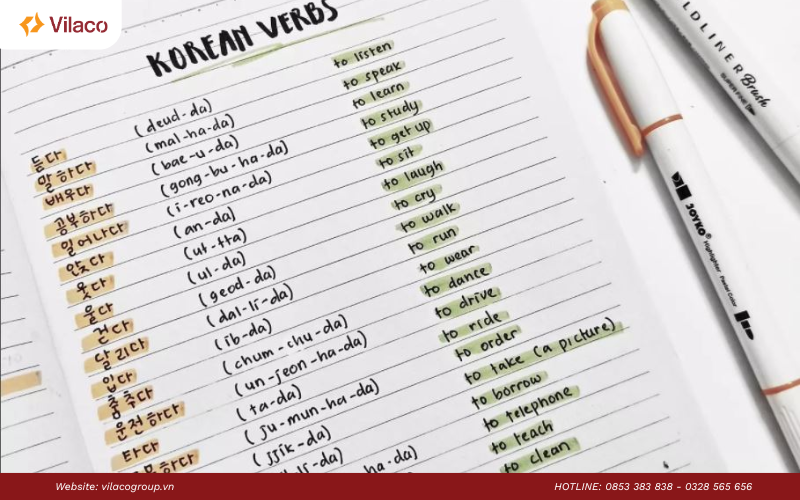 Vilaco
KOREAN VERBS
듣다 (deud-da) to listen
말하다 (mal-ha-da) to speak
배우다 (bae-u-da) to learn
공부하다 (gong-bu-ha-da) to study
일어나다 (i-reo-na-da) to get up
앉다 (an-da) to sit
웃다 (ut-tta) to laugh
울다 (ul-da) to cry
걷다 (geod-da) to walk
달리다 (dal-li-da) to run
입다 (ib-da) to wear
춤추다 (chum-chu-da) to dance
운전하다 (un-jeon-ha-da) to drive
타다 (ta-da) to ride
문하다 (ju-mun-ha-da) to order
(jjik-da) to take (a picture)
li-da) to borrow
ha-da) to telephone
to teach
to clean
LDLINER Brush
JOYKO
Highlighter Pastel Color
Website: vilacogroup.vn
HOTLINE: 0853 383 838 - 0328 565 656